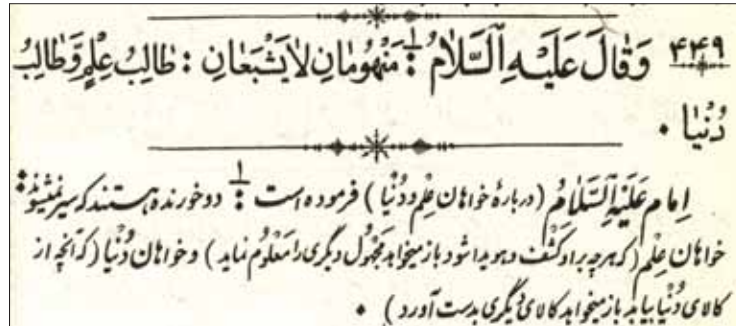 ۴۴۹ وَقٰالَ عَلَيْهِ ٱلسَّلٰامُ : مَنْهُومٰانِ لٰا يَشْبَعٰانِ : طٰالِبُ عِلْمٍ وَّطٰالِبُ
دُنْيٰا .
۱
إمام عَلَيْهِ ٱلسَّلٰامُ (دربارهٔ خواهان علم و دُنْيا) فرموده است : دو خورنده هستند كه سير نميشوند :
خواهان عِلْم (كه هرچه براو كشف و هويدا شود باز ميخواهد مجهول ديگرى را معلوم نمايد) و خواهان دُنْيا (كه آنچه از
كالاى دُنْيا بيابد باز ميخواهد كالاى ديگرى بدست آورد) .